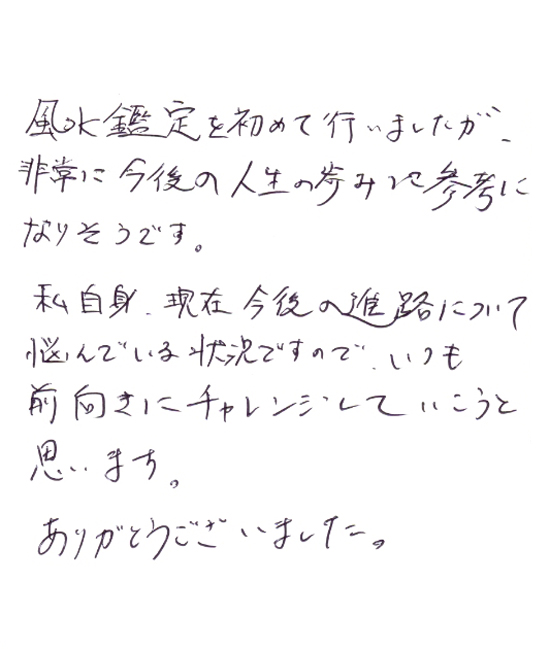 風水鑑定を初めて行いましたが、
非常に今後の人生の歩みに参考に
なりそうです。
私自身、現在今後の進路について
悩んでいる状況ですので、いつも
前向きにチャレンジしていこうと
思います。
ありがとうございました。